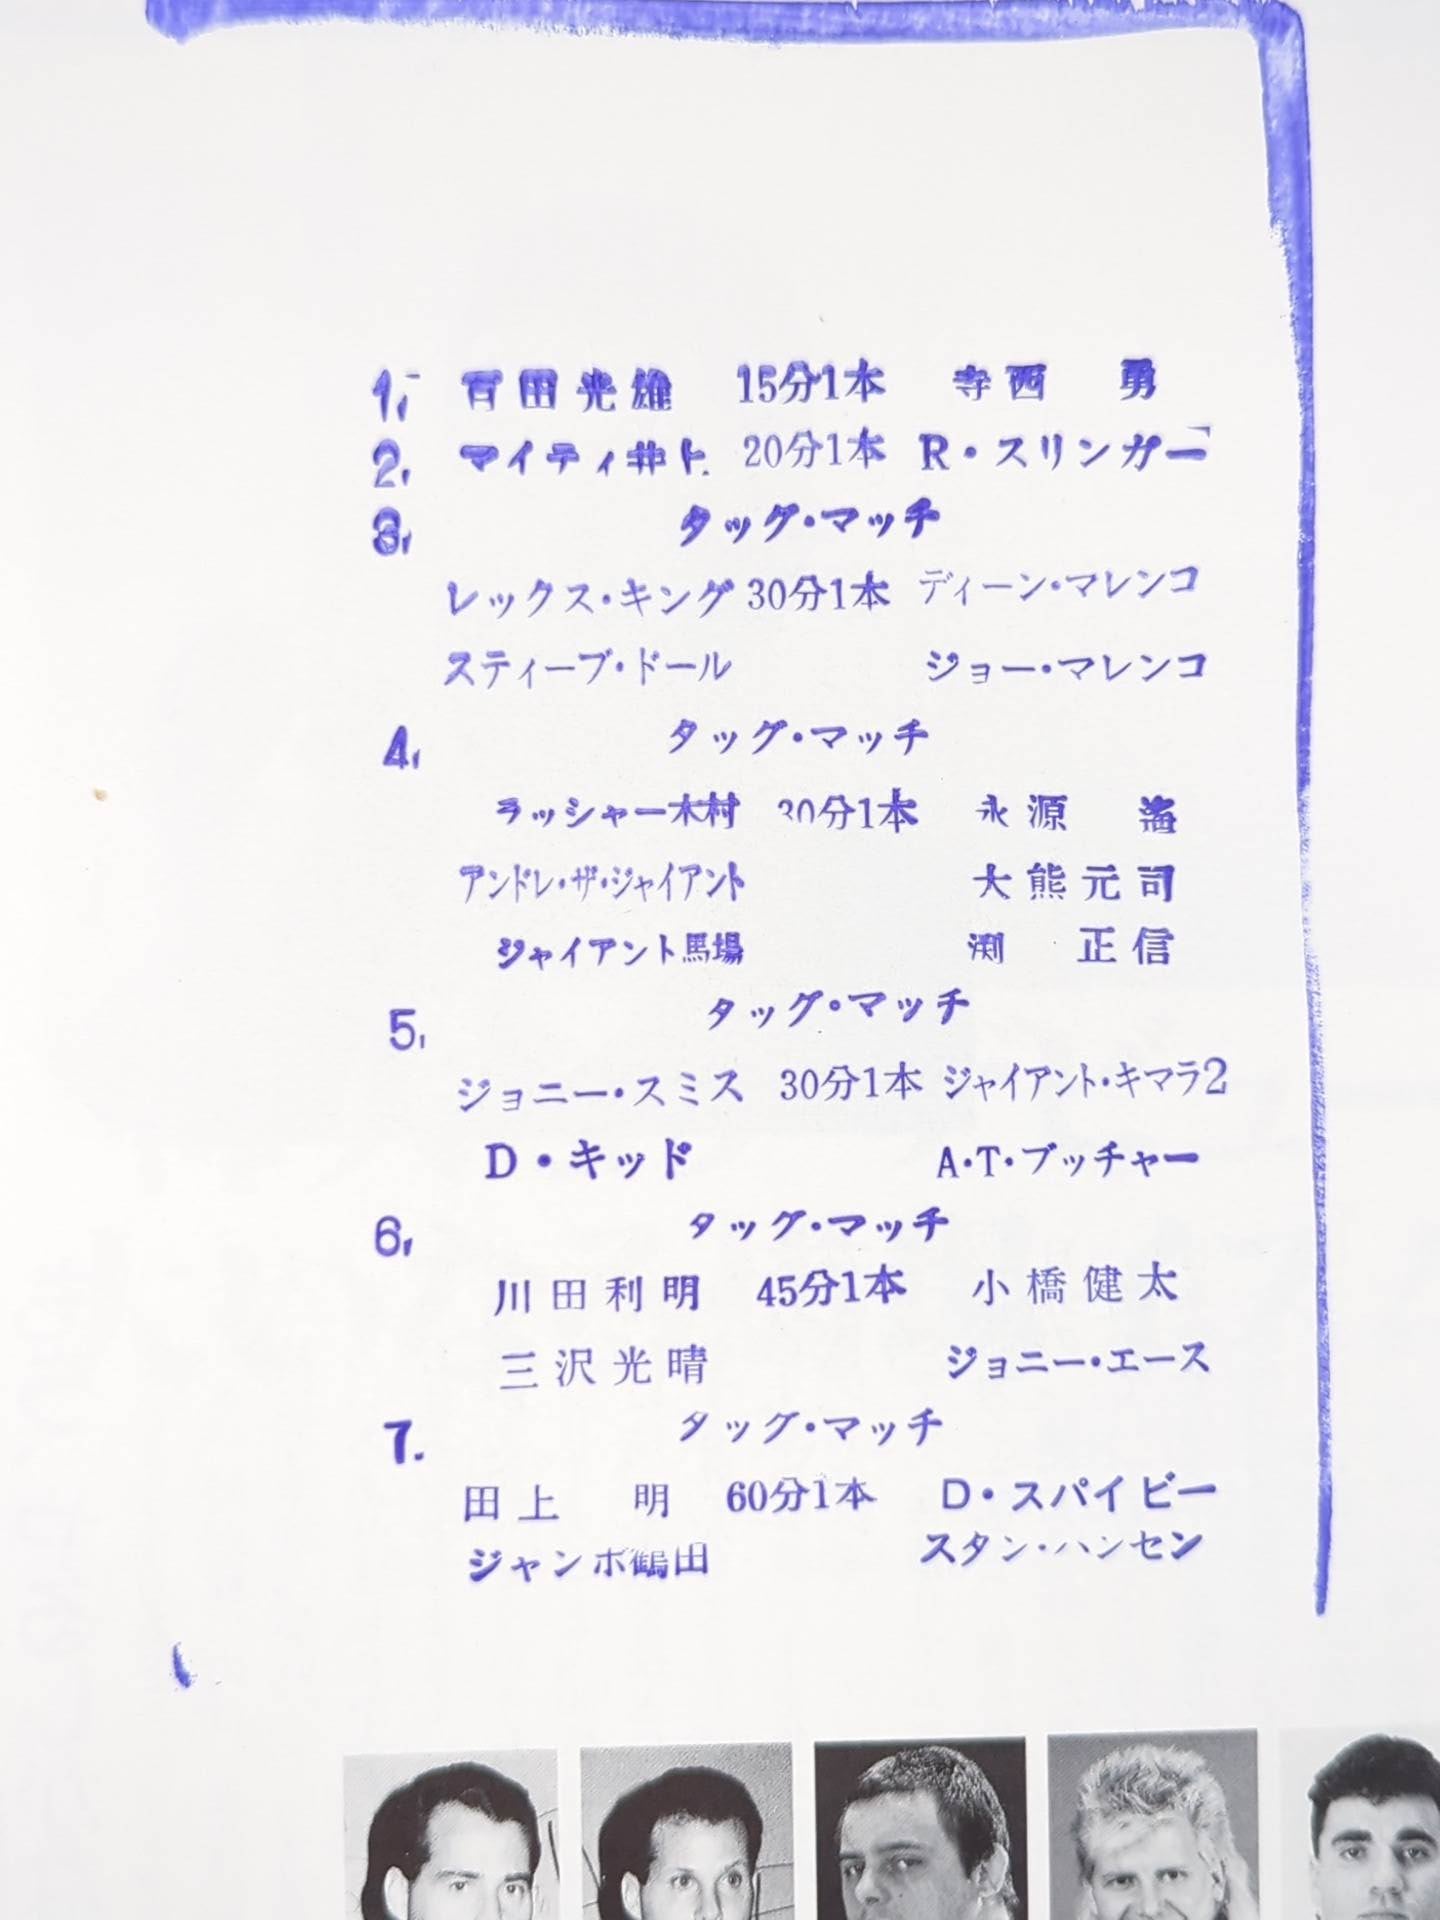 1, 百田光雄 15分1本 寺西 勇
2, マイティ井上 20分1本 R・スリンガー
3, タッグ・マッチ
レックス・キング 30分1本 ディーン・マレンコ
スティーブ・ドール ジョー・マレンコ
4, タッグ・マッチ
ラッシャー木村 30分1本 永源 遙
アンドレ・ザ・ジャイアント 大熊元司
ジャイアント馬場 渕 正信
5, タッグ・マッチ
ジョニー・スミス 30分1本 ジャイアント・キマラ2
D・キッド A・T・ブッチャー
6, タッグ・マッチ
川田利明 45分1本 小橋健太
三沢光晴 ジョニー・エース
7. タッグ・マッチ
田上 明 60分1本 D・スパイビー
ジャンボ鶴田 スタン・ハンセン